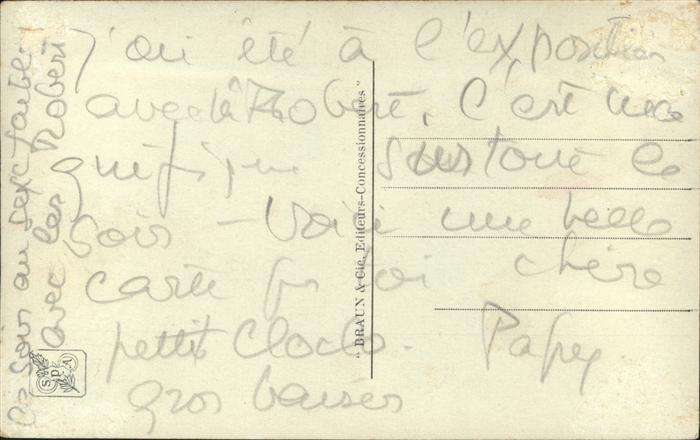 j'ai été à l'exposition
avec tt Robert. C'est ma
gnifique surtout le
soir – Voici une belle
carte pr toi chère
petit Cloclo. Papy
gros baiser
Ce soir au sexe faible
avec les Robert
"BRAUN & Cie, Editeurs-Concessionnaires"
SPA